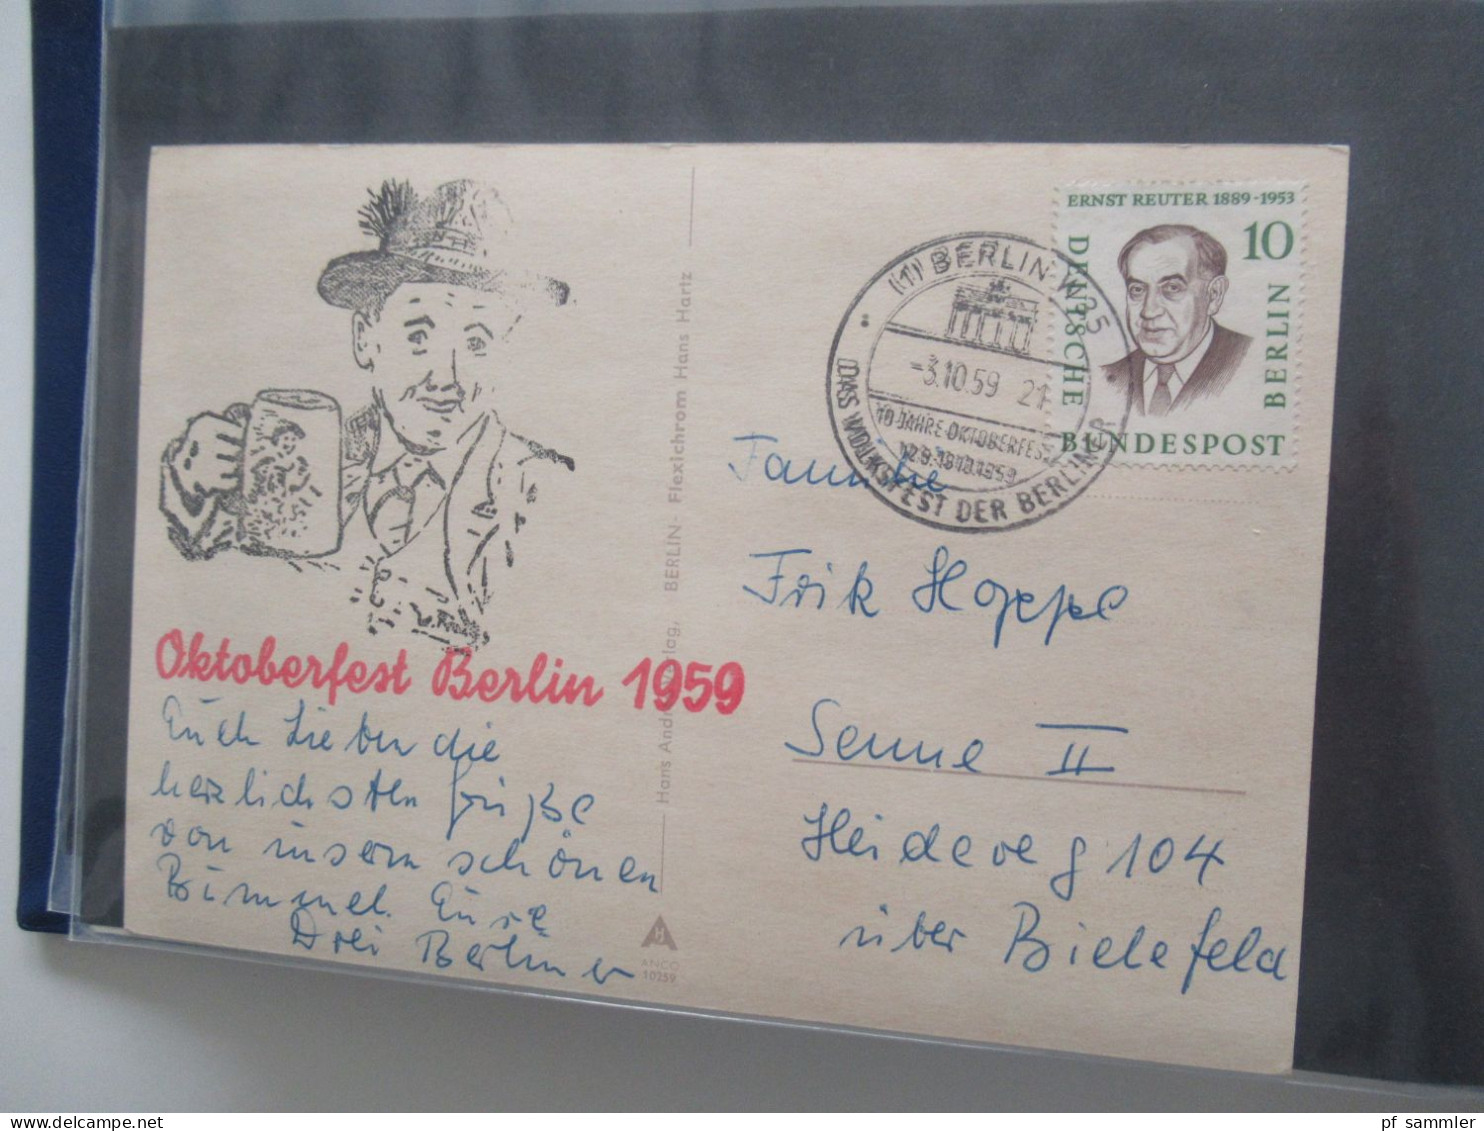 ERNST REUTER 1889-1953
10
DEUTSCHE
BERLIN
BUNDESPOST
(1) BERLIN W 35
-3.10.59 21
10 JAHRE OKTOBERFEST
DAS VOLKSFEST DER BERLINER
Hans Andres Verlag, BERLIN - Flexichrom Hans Hartz
Oktoberfest Berlin 1959
Euch Lieben die
herzlichsten Grüße
von unserm schönen
Bummel. Eure
Drei Berliner
Familie
Erik Hoppe
Senne II
Heideweg 104
über Bielefeld
H
ANCO
10259
pf_sammler